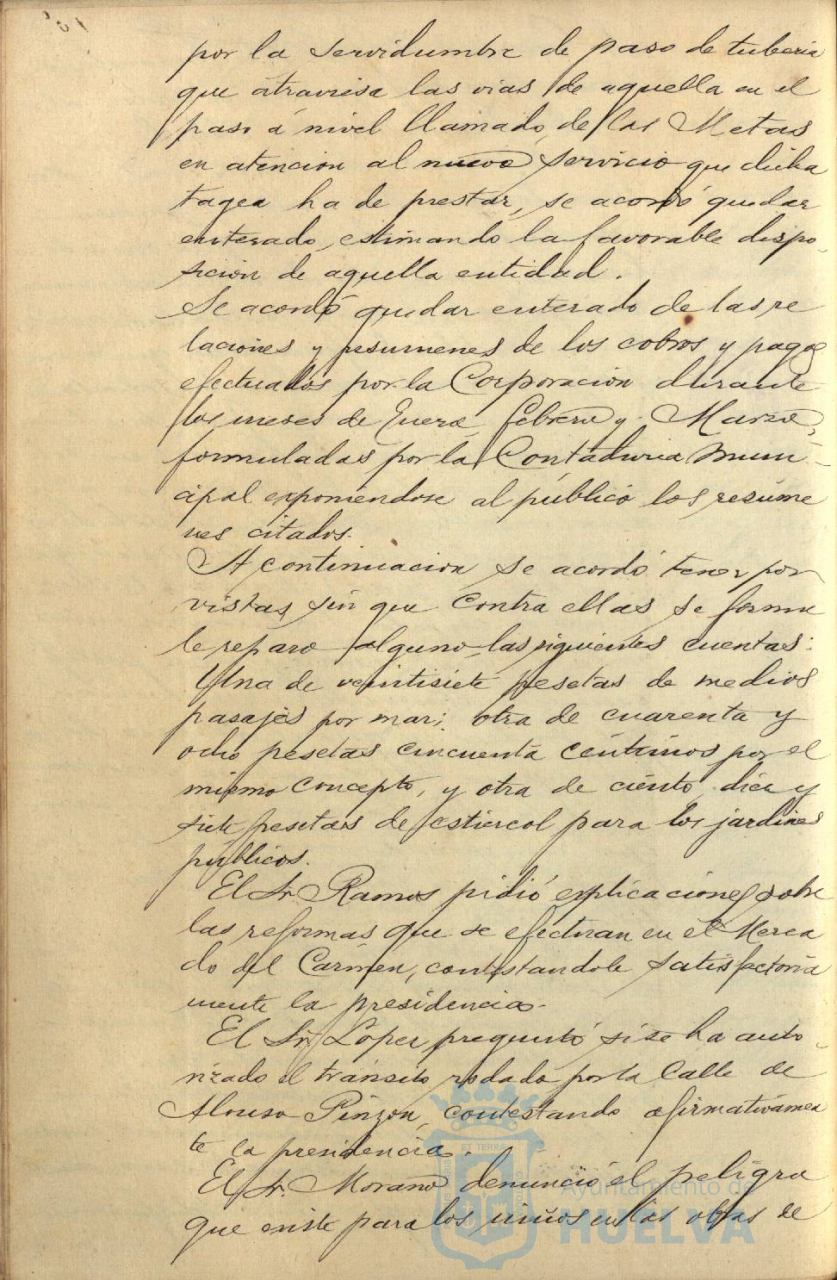 por la servidumbre de paso de tuberia
que atraviesa las vias de aquella en el
paso á nivel llamado de las Metas
en atencion al nuevo servicio que dicha
tagea ha de prestar, se acordó quedar
enterado, estimando la favorable dispo-
sicion de aquella entidad.
Se acordó quedar enterado de las re
laciones y resumenes de los cobros y pagos
efectuados por la Corporacion durante
los meses de Enero, Febrero y Marzo,
formuladas por la Contaduria Muni-
cipal exponiendose al público los resúme
nes citados.
A continuacion se acordó tener por
vistas, sin que contra ellas se formu
le reparo alguno, las siguientes cuentas:
Una de veintisiete pesetas de medios
pasajes por mar; otra de cuarenta y
ocho pesetas cincuenta céntimos por el
mismo concepto, y otra de ciento diez y
siete pesetas de estiercol para los jardines
publicos.
El Sr. Ramos pidió explicaciones sobre
las reformas que se efectuan en el Merca
do del Carmen, contestandole satisfactoria
mente la presidencia.
El Sr. Lopez preguntó si se ha auto-
rizado el tránsito rodado por la Calle de
Alonso Pinzon, contestando afirmativamen
te la presidencia.
El Sr. Morano denunció el peligro
que existe para los niños en las obras de
Ayuntamiento de
HUELVA